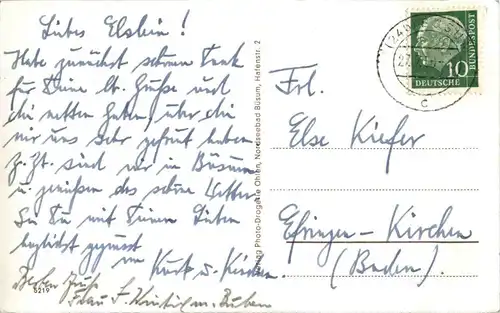 Liebes Elslein!
Habe zunächst schönen Dank
für Deine lb. Grüße und
die netten Karten, über die
wir uns sehr gefreut haben
Z. Zt. sind wir in Büsum
u. genießen das schöne Wetter
Sei Du mit Deinen Lieben
herzlichst gegrüsst
von Kurt u. Kirchen
Besten Gruß
Frau F.
5219
Verlag Photo-Drogerie Ohlen, Nordseebad Büsum, Hafenstr. 2
(24b) BÜSUM
c
10
DEUTSCHE BUNDESPOST
Frl.
Else Kiefer
Efringen-Kirchen
(Baden)